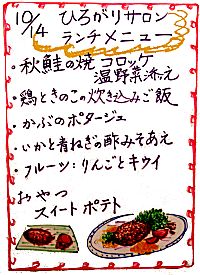 10/14 ひろがりサロン
ランチメニュー
・秋鮭の焼コロッケ
温野菜添え
・鶏ときのこの炊き込みご飯
・かぶのポタージュ
・いかと青ねぎの酢みそあえ
・フルーツ:りんごとキウイ
おやつ
スイートポテト